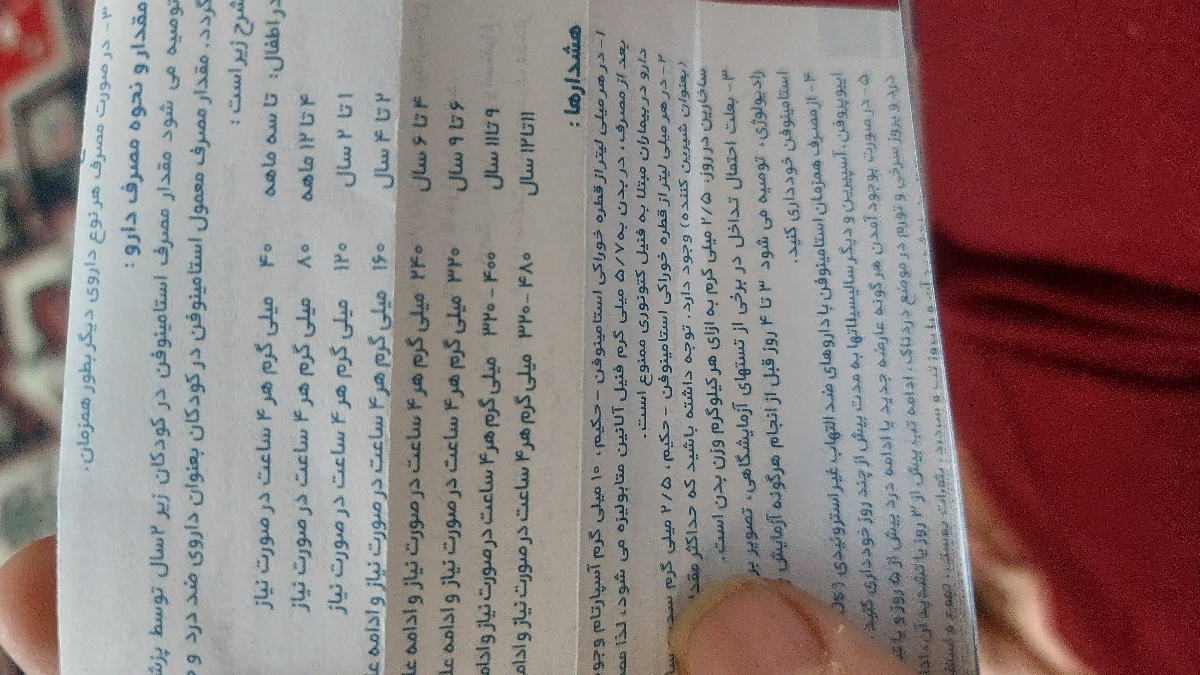 ۳- در صورت مصرف هر نوع داروی دیگر بطور همزمان.
مقدار و نحوه مصرف دارو :
توصیه می شود مقدار مصرف استامینوفن در کودکان زیر ۲ سال توسط پزش
گردد. مقدار مصرف معمول استامینوفن در کودکان بعنوان داروی ضد درد و
شرح زیر است :
در اطفال: تا سه ماهه ۴۰ میلی گرم هر ۴ ساعت در صورت نیاز
۴ تا ۱۲ ماهه ۸۰ میلی گرم هر ۴ ساعت در صورت نیاز
۱ تا ۲ سال ۱۲۰ میلی گرم هر ۴ ساعت در صورت نیاز
۲ تا ۴ سال ۱۶۰ میلی گرم هر ۴ ساعت در صورت نیاز و ادامه عل
۴ تا ۶ سال ۲۴۰ میلی گرم هر ۴ ساعت در صورت نیاز و ادامه علا
۶ تا ۹ سال ۳۲۰ میلی گرم هر ۴ ساعت در صورت نیاز و ادامه عل
۹ تا ۱۱ سال ۴۰۰-۳۲۰ میلی گرم هر ۴ ساعت در صورت نیاز و ادام
۱۱ تا ۱۲ سال ۴۸۰-۳۲۰ میلی گرم هر ۴ ساعت در صورت نیاز و ادام
هشدارها :
۱- در هر میلی لیتر از قطره خوراکی استامینوفن - حکیم، ۱۰ میلی گرم آسپارتام وجو
بعد از مصرف، در بدن به ۵/۷ میلی گرم فنیل آلانین متابولیزه می شود، لذا مص
دارو در بیماران مبتلا به فنیل کتونوری ممنوع است.
۲- در هر میلی لیتر از قطره خوراکی استامینوفن - حکیم، ۲/۵ میلی گرم سا
(بعنوان شیرین کننده) وجود دارد. توجه داشته باشید که حداکثر مقد
ساخارین در روز، ۲/۵ میلی گرم به ازای هر کیلوگرم وزن بدن است.
۳- بعلت احتمال تداخل در برخی از تستهای آزمایشگاهی، تصویر بر
رادیولوژی، توصیه می شود ۳ تا ۴ روز قبل از انجام هرگونه آزمایش
استامینوفن خودداری کنید.
۴- از مصرف همزمان استامینوفن با داروهای ضد التهاب غیر استروئیدی
ایبوپروفن، آسپیرین و دیگر سالیسیلاتها به مدت بیش از چند روز خودداری کنید.
۵- در صورت بوجود آمدن هرگونه عارضه جدید یا ادامه درد بیش از ۵ روز و یا
درد و بروز سرخی و تورم در موضع دردناک، ادامه تب بیش از ۳ روز یا تشدید آن، ادا